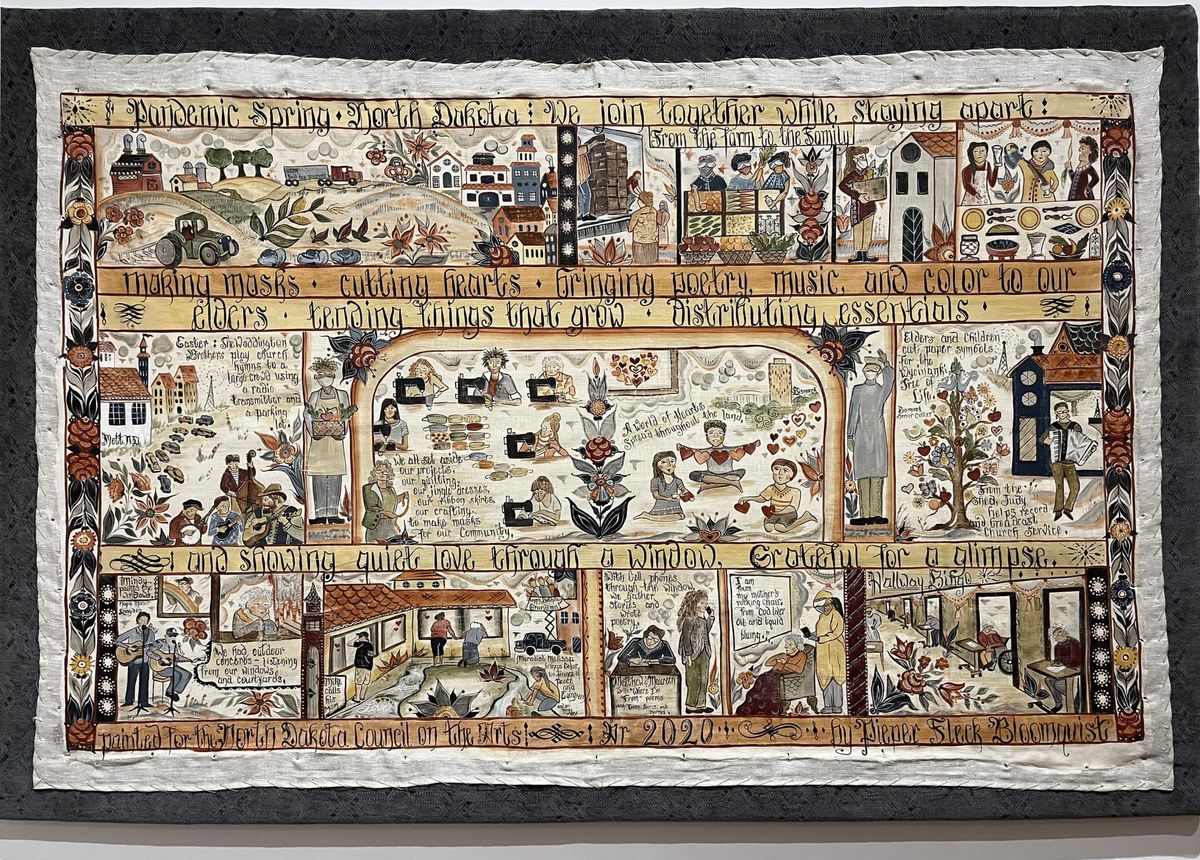 Pandemic Spring · North Dakota : We join together while staying apart :
From the farm to the Family
making masks · cutting hearts · bringing poetry, music, and color to our
elders · tending things that grow · distributing essentials ·
Easter : The Waddington
Brothers play church
hymns to a
large crowd using
a radio
transmitter and
a parking
lot
Mott
We all set aside
our projects,
our quilting,
our jingle dresses,
our ribbon skirts,
our crafting,
to make masks
for our community.
A World of Hearts
Spread throughout the land,
Elders and Children
cut paper symbols
for the
Wycinanki
Tree of
Life.
From the
shed, Judy
helps record
and broadcast
Church Service.
: and showing quiet love through a window. Grateful for a glimpse.
Mindy
paints the
windows
We had outdoor
concerts – listening
from our windows
and courtyards.
Mike
calls
his
Muralist Melissa
brings color
and
With cell phones
through the window
we gather
stories and
wrote
poetry.
Matthew & Maureen
"Where I'm
From" poems
I am
from
my mother's
rocking chair.
From Cod liver
oil and liquid
bluing.
Hallway Bingo
painted for the North Dakota Council on the Arts : Ar 2020 · by Pieper Fleck Bloomquist